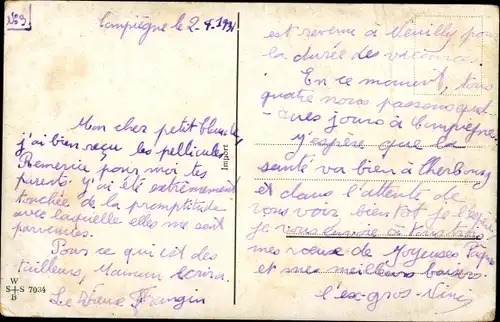 N°9
Compiègne le 2-4.1931
Mon cher petit
j'ai bien reçu les pellicules
Remercie pour moi tes
parents. j'y ai été extrêmement
touchée de la promptitude
avec laquelle elles me sont
parvenues.
Pour ce qui est des
tailleurs, Maman écrira.
Le Vieux Frangin
W
S+S 7034
B
Import
est revenu à Neuilly pour
la durée des vacances.
En ce moment, tous
quatre nous passons quel-
ques jours à Compiègne
j'espère que la
santé va bien à Cherbourg
et dans l'attente de
vous voir, bientôt je l'espère
je vous envoie à tous
mes vœux de Joyeuses Pâques
et mes meilleurs baisers.
l'ex-gros-